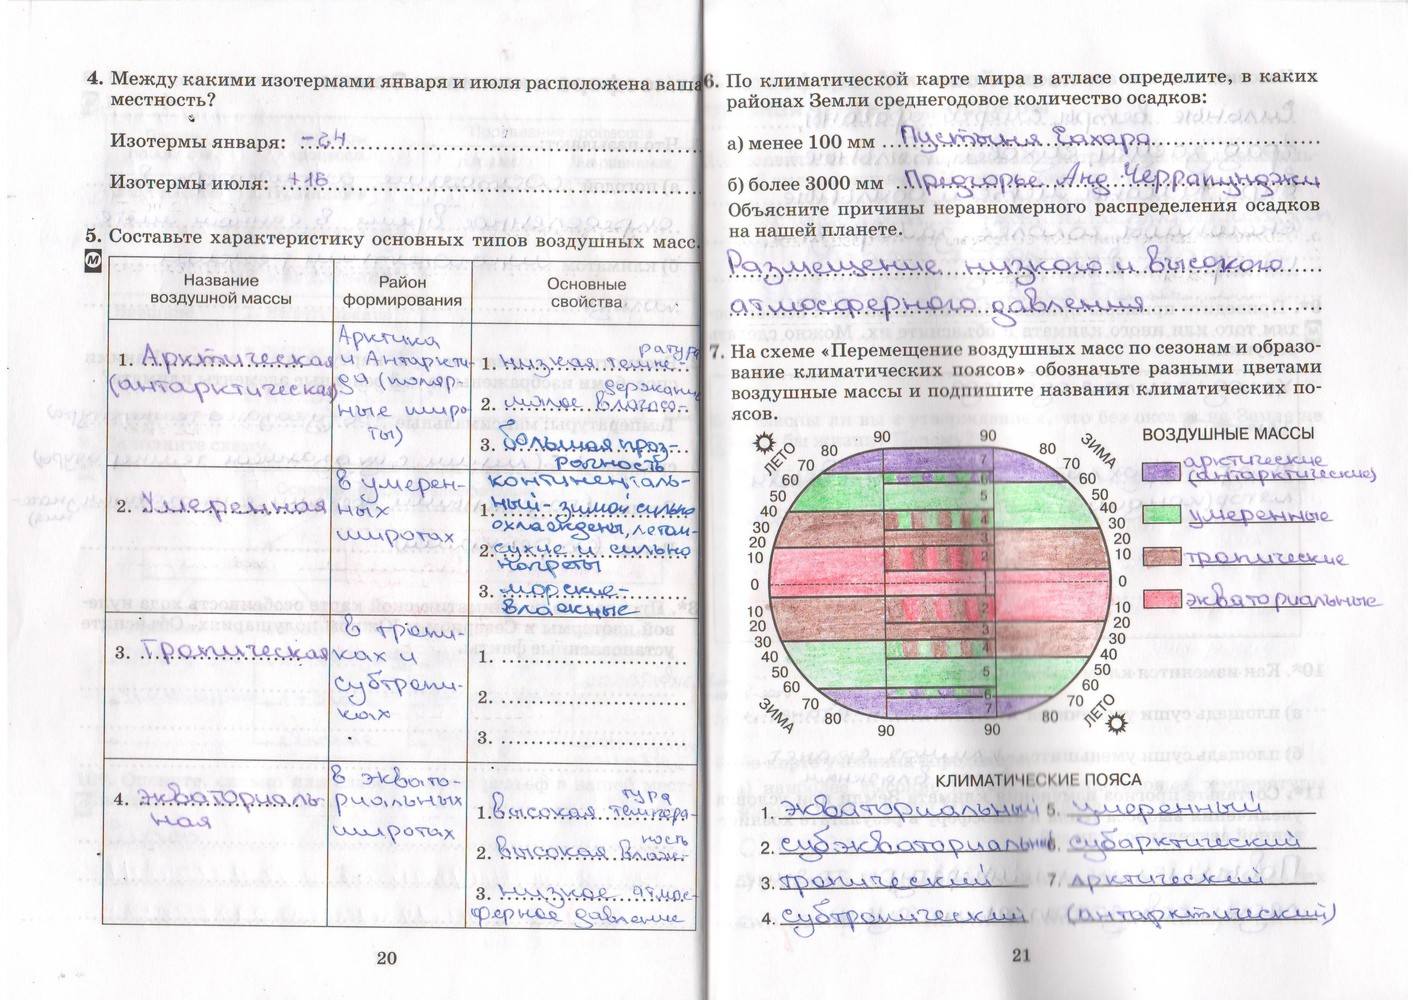 4. Между какими изотермами января и июля расположена ваша
местность?
Изотермы января: -24
Изотермы июля: +16
5. Составьте характеристику основных типов воздушных масс.
М
Название
воздушной массы
Район
формирования
Основные
свойства
1. Арктическая
(антарктическая)
Арктика
и Антаркти-
да (поляр-
ные широ
ты)
1. низкая темпе-
ратура
2. малое влагосо-
держание
3. большая проз-
рачность
2. Умеренная
в умерен-
ных
широтах
континенталь-
1. ный - зимой сильно
охлаждены, летом-
2. сухие и сильно
нагреты
3. морские-
влажные
3. Тропическая
в тропи-
ках и
субтропи-
ках
1.
2.
3.
4. экваториаль-
ная
в эквато-
риальных
широтах
1. высокая темпера-
тура
2. высокая влаж-
ность
3. низкое атмос-
ферное давление
20
6. По климатической карте мира в атласе определите, в каких
районах Земли среднегодовое количество осадков:
а) менее 100 мм Пустыня Сахара
б) более 3000 мм Предгорье Анд Черрапунджи
Объясните причины неравномерного распределения осадков
на нашей планете.
Размещение низкого и высокого
атмосферного давления
7. На схеме «Перемещение воздушных масс по сезонам и образо-
вание климатических поясов» обозначьте разными цветами
воздушные массы и подпишите названия климатических по-
ясов.
90 90
ЛЕТО 80 80 ЗИМА
70 70
60 60
50 50
40 40
30 30
20 20
10 10
0 0
10 10
20 20
30 30
40 40
50 50
60 60
70 70
ЗИМА 80 80 ЛЕТО
90 90
7
6
5
4
3
2
1
2
3
4
5
6
7
ВОЗДУШНЫЕ МАССЫ
арктические
(антарктические)
умеренные
тропические
экваториальные
КЛИМАТИЧЕСКИЕ ПОЯСА
1. экваториальный 5. умеренный
2. субэкваториальный 6. субарктический
3. тропический 7. арктический
4. субтропический (антарктический)
21